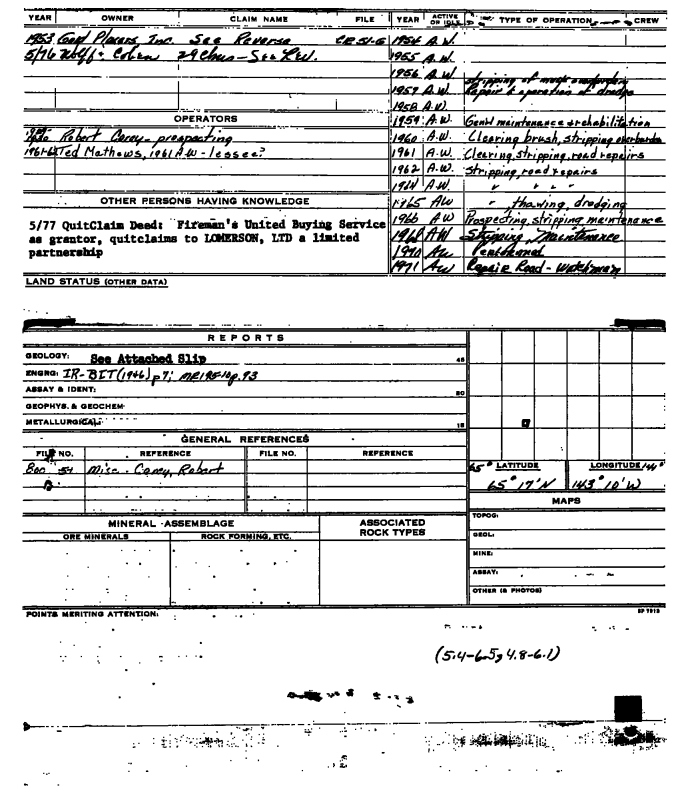 YEAR OWNER CLAIM NAME FILE YEAR ACTIVE OR IDLE TYPE OF OPERATION CREW
1953 Gold Placers Inc. See Reverse CR 51-5 1954 A.W.
5/76 Wolff & Cohen 29 Clms - See KW. 1955 A.W.
1956 A.W. stripping of muck overburden
1957 A.W. Repair & operation of dredge
1958 A.W.
OPERATORS 1959 A.W. Gen'l maintenance & rehabilitation
Robert Carey - prospecting 1960 A.W. Clearing brush, stripping overburden
1961-62 Ted Mathews, 1961 A.W - lessee? 1961 A.W. Clearing, stripping, road repairs
1962 A.W. Stripping, road repairs
1964 A.W. " " " "
OTHER PERSONS HAVING KNOWLEDGE 1965 AW " thawing, dredging
5/77 QuitClaim Deed: Fireman's United Buying Service 1966 AW Prospecting, stripping, maintenance
as grantor, quitclaims to LOMERSON, LTD a limited 1968 AW Stripping, Maintenance
partnership 1970 AW
1971 AW Repair Road - Watchman
LAND STATUS (OTHER DATA)
REPORTS
GEOLOGY: See Attached Slip 45
ENGRG: IR-BIT (1946) p7; MR195-10 p.93
ASSAY & IDENT: 50
GEOPHYS. & GEOCHEM
METALLURGICAL: 15
GENERAL REFERENCES
FILE NO. REFERENCE FILE NO. REFERENCE
800 54 Misc - Carey, Robert
65° LATITUDE LONGITUDE 144°
65° 17' N 143° 10' W
MAPS
TOPOG:
MINERAL ASSEMBLAGE ASSOCIATED ROCK TYPES
ORE MINERALS ROCK FORMING, ETC. GEOL:
MINE:
ASSAY:
OTHER (& PHOTOS)
POINTS MERITING ATTENTION: SP 7913
(5.4-6.5, 4.8-6.1)